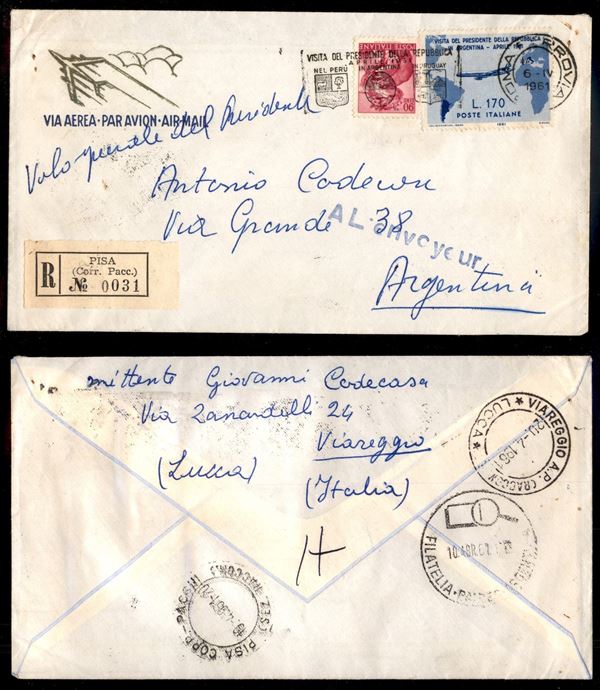 VISITA DEL PRESIDENTE DELLA REPUBBLICA
APRILE 1961
NEL PERÙ IN ARGENTINA IN URUGUAY
VISITA DEL PRESIDENTE DELLA REPUBBLICA
IN ARGENTINA - APRILE 1961
L. 170
POSTE ITALIANE
1961
90
ROMA FERROVIA
6-IV
1961
VIA AEREA · PAR AVION · AIR MAIL
Volo speciale del Presidente
Antonio
Via Grande 38
Argentina
A L'envoyeur
R
PISA
(Corr. Pacc.)
№ 0031
mittente Giovanni Codecasa
Via Zanardelli 24
Viareggio
(Lucca) (Italia)
VIAREGGIO A.P. (RACCOM
* LUCCA *
20.4.1961
10 ABR.61
FILATELIA
H
PISA CORR-PACCHI